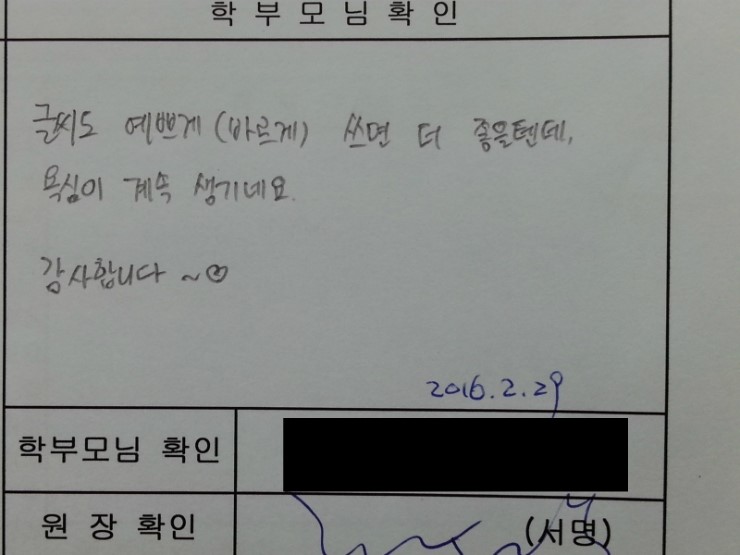 학 부 모 님 확 인
글씨도 예쁘게 (바르게) 쓰면 더 좋을텐데,
욕심이 계속 생기네요.
감사합니다 ~♡
2016.2.29
학부모님 확인
원 장 확인 (서명)